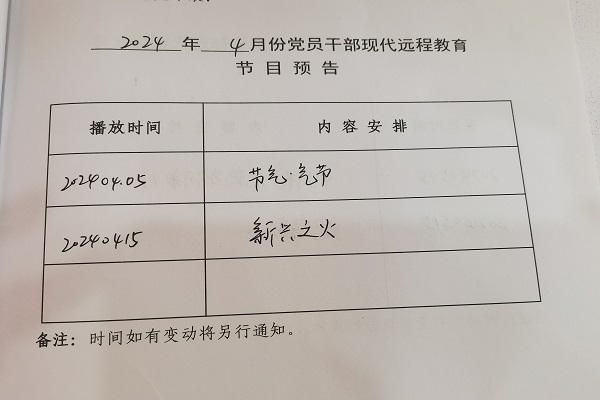 2024 年 4 月份党员干部现代远程教育
节目预告
播放时间 内容安排
202404.05 节气·气节
20240415 新兴之火
备注：时间如有变动将另行通知。